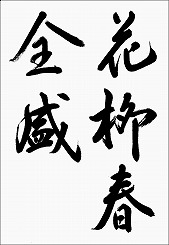 花柳春
全盛